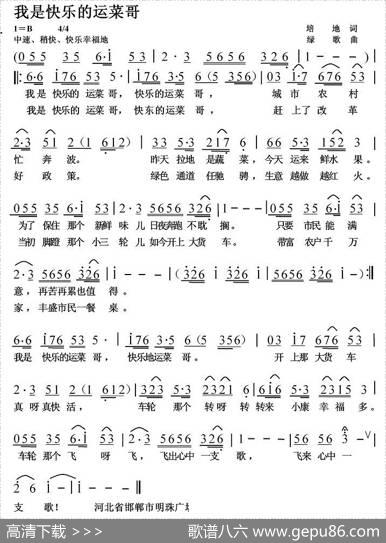 我是快乐的运菜哥
1=B 4/4 培地 词
中速、稍快、快乐幸福地 绿歌 曲
(055 35 6·i 53 | 2·3 5656 326 1 - - - )
‖: 6·6 i76 53 5 | i76 3·5 6 - | 03 i·7 676 53 |
我是 快乐的运菜 哥, 快乐的运菜 哥, 城市 农村
我是 快乐的运菜 哥, 快东的运菜 哥, 赶上了 改革
2·3 51 2 (1 612) | 33 5·3 217 6 | 66 5·3 152 3 |
忙 奔 波。 昨天 拉地 是蔬 菜, 今天 运来 鲜水 果。
好 政 策。 绿色 通道 任驰 骋, 生意 越做 越红 火。
035 35 6·i 53 | 2·3 5656 326 1 | 055 35 6·i 53 |
为了 保住 那个 新鲜 味儿 日夜奔跑 不耽 搁。 只要 市民 能满
当初 脚蹬 那个 小三 轮儿 如今开上 大货 车。 带富 农户 千万
2·3 5656 326 | i - - - | (326 5656 326 | i - - - ) :‖
意, 再苦再累也值 得。
家, 丰盛市民一餐 桌。
6·6 i76 53 5 | i76 3·5 6 (5 356) | 03 i·7 676 53 |
我是 快乐的运菜 哥, 快乐地运菜 哥。 开 上那 大货 车
2·3 51 2 (1 612) | 323 5·3 2321 | 616 5·3 2315 6 |
真呀 真快 活, 车轮 那个 转呀 转转来 小康 幸福 多。
055 35 6·i 53 | 2·3 5656 326 1 | 1 - - - | 56 56 3 - ∨ |
车轮 那个 飞呀 飞, 飞出心中 一支 歌, 飞来 心中 一
2 6 i - | i - - - ‖
支 歌! 河北省邯郸市明珠广场
高清下载 >>> 歌谱八六 www.gepu86.com